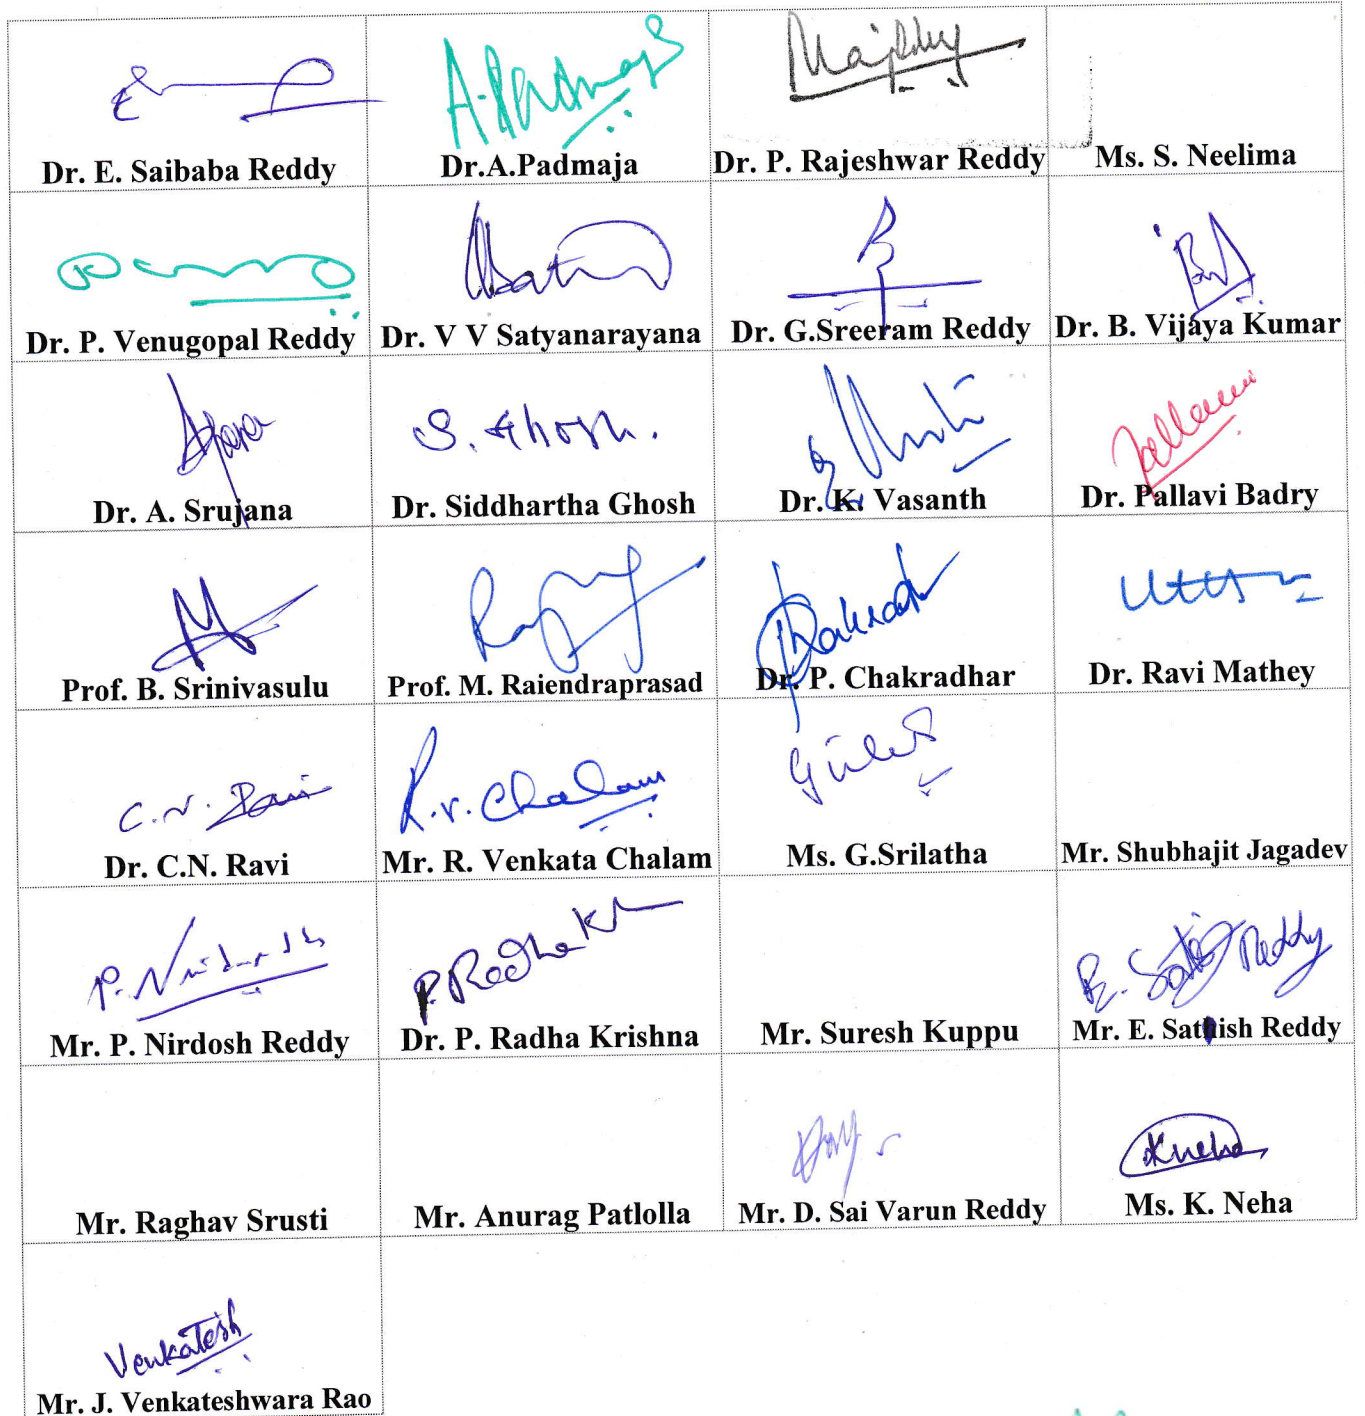 A. Padmaja
Dr. E. Saibaba Reddy
Dr.A.Padmaja
Dr. P. Rajeshwar Reddy
Ms. S. Neelima
Dr. P. Venugopal Reddy
Dr. V V Satyanarayana
Dr. G.Sreeram Reddy
Dr. B. Vijaya Kumar
S. Ghosh.
Dr. A. Srujana
Dr. Siddhartha Ghosh
Dr. K. Vasanth
Dr. Pallavi Badry
Prof. B. Srinivasulu
Prof. M. Raiendraprasad
Dr. P. Chakradhar
Dr. Ravi Mathey
C.N. Ravi
R.V. Chalam
Dr. C.N. Ravi
Mr. R. Venkata Chalam
Ms. G.Srilatha
Mr. Shubhajit Jagadev
Mr. P. Nirdosh Reddy
Dr. P. Radha Krishna
Mr. Suresh Kuppu
Mr. E. Sathish Reddy
K neha
Mr. Raghav Srusti
Mr. Anurag Patlolla
Mr. D. Sai Varun Reddy
Ms. K. Neha
Venkatesh
Mr. J. Venkateshwara Rao